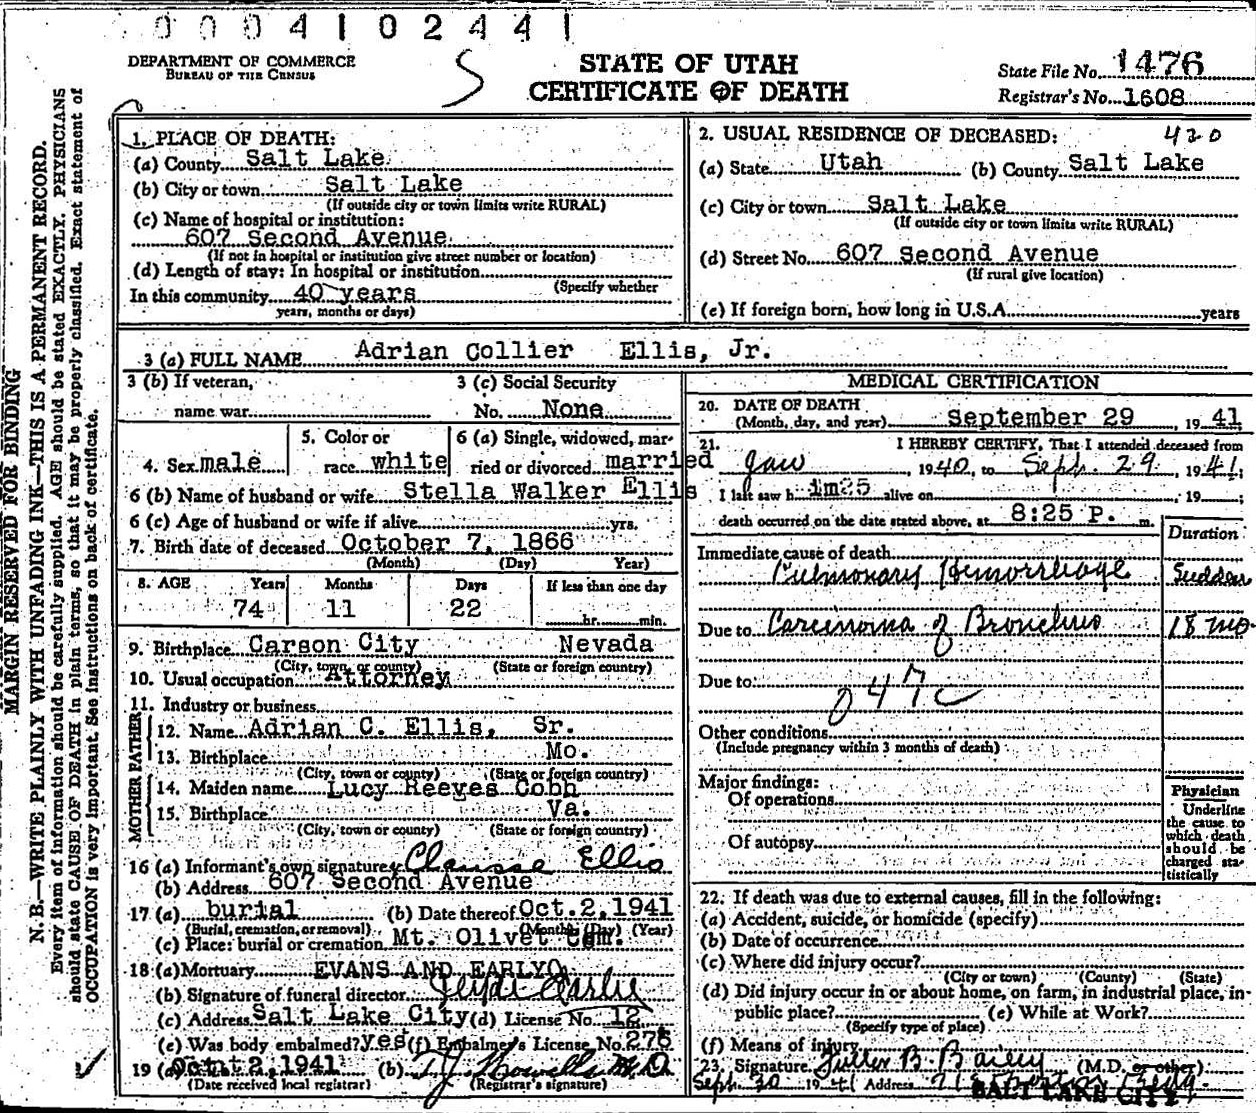 0004102441
DEPARTMENT OF COMMERCE
BUREAU OF THE CENSUS
S
STATE OF UTAH
CERTIFICATE OF DEATH
State File No. 1476
Registrar's No. 1608
MARGIN RESERVED FOR BINDING
N. B.—WRITE PLAINLY WITH UNFADING INK—THIS IS A PERMANENT RECORD.
Every item of information should be carefully supplied. AGE should be stated EXACTLY. PHYSICIANS
should state CAUSE OF DEATH in plain terms, so that it may be properly classified. Exact statement of
OCCUPATION is very important. See instructions on back of certificate.
1. PLACE OF DEATH:
(a) County Salt Lake
(b) City or town Salt Lake
(If outside city or town limits write RURAL)
(c) Name of hospital or institution:
607 Second Avenue
(If not in hospital or institution give street number or location)
(d) Length of stay: In hospital or institution
(Specify whether
In this community 40 years
years, months or days)
2. USUAL RESIDENCE OF DECEASED: 430
(a) State Utah (b) County Salt Lake
(c) City or town Salt Lake
(If outside city or town limits write RURAL)
(d) Street No. 607 Second Avenue
(If rural give location)
(e) If foreign born, how long in U.S.A. years
3 (a) FULL NAME Adrian Collier Ellis, Jr.
3 (b) If veteran, 3 (c) Social Security
name war No. None
4. Sex male 5. Color or race white 6 (a) Single, widowed, married or divorced married
6 (b) Name of husband or wife Stella Walker Ellis
6 (c) Age of husband or wife if alive yrs.
7. Birth date of deceased October 7, 1866
(Month) (Day) Year)
8. AGE Years Months Days If less than one day
74 11 22 hr. min.
9. Birthplace Carson City Nevada
(City, town, or county) (State or foreign country)
10. Usual occupation Attorney
11. Industry or business
FATHER
12. Name Adrian C. Ellis, Sr.
13. Birthplace Mo.
(City, town or county) (State or foreign country)
MOTHER
14. Maiden name Lucy Reeves Cobb
15. Birthplace Va.
(City, town or county) (State or foreign country)
16 (a) Informant's own signature Ellis
(b) Address 607 Second Avenue
17 (a) burial (b) Date thereof Oct. 2, 1941
(Burial, cremation, or removal) (Month) (Day) (Year)
(c) Place: burial or cremation Mt. Olivet Cem.
18 (a) Mortuary EVANS AND EARLY
(b) Signature of funeral director
(c) Address Salt Lake City (d) License No. 12
(e) Was body embalmed? yes (f) Embalmer's License No. 276
19 (a) Oct 2, 1941 (b) M.D.
(Date received local registrar) (Registrar's signature)
MEDICAL CERTIFICATION
20. DATE OF DEATH
(Month, day, and year) September 29, 1941
21. I HEREBY CERTIFY, That I attended deceased from
Jan, 1940, to Sept. 29, 1941;
I last saw h im25 alive on , 19 ;
death occurred on the date stated above, at 8:25 P. m.
Duration
Immediate cause of death
Pulmonary Hemorrhage Sudden
Due to Carcinoma of Bronchus 18 mo.
Due to
047c
Other conditions
(Include pregnancy within 3 months of death)
Major findings:
Of operations
Of autopsy
Physician
Underline
the cause to
which death
should be
charged sta-
tistically
22. If death was due to external causes, fill in the following:
(a) Accident, suicide, or homicide (specify)
(b) Date of occurrence
(c) Where did injury occur?
(City or town) (County) (State)
(d) Did injury occur in or about home, on farm, in industrial place, in
public place? (e) While at Work?
(Specify type of place)
(f) Means of injury
23. Signature Fuller B. Bailey (M.D. or other)
Sept. 30 1941 Address
SALT LAKE CITY